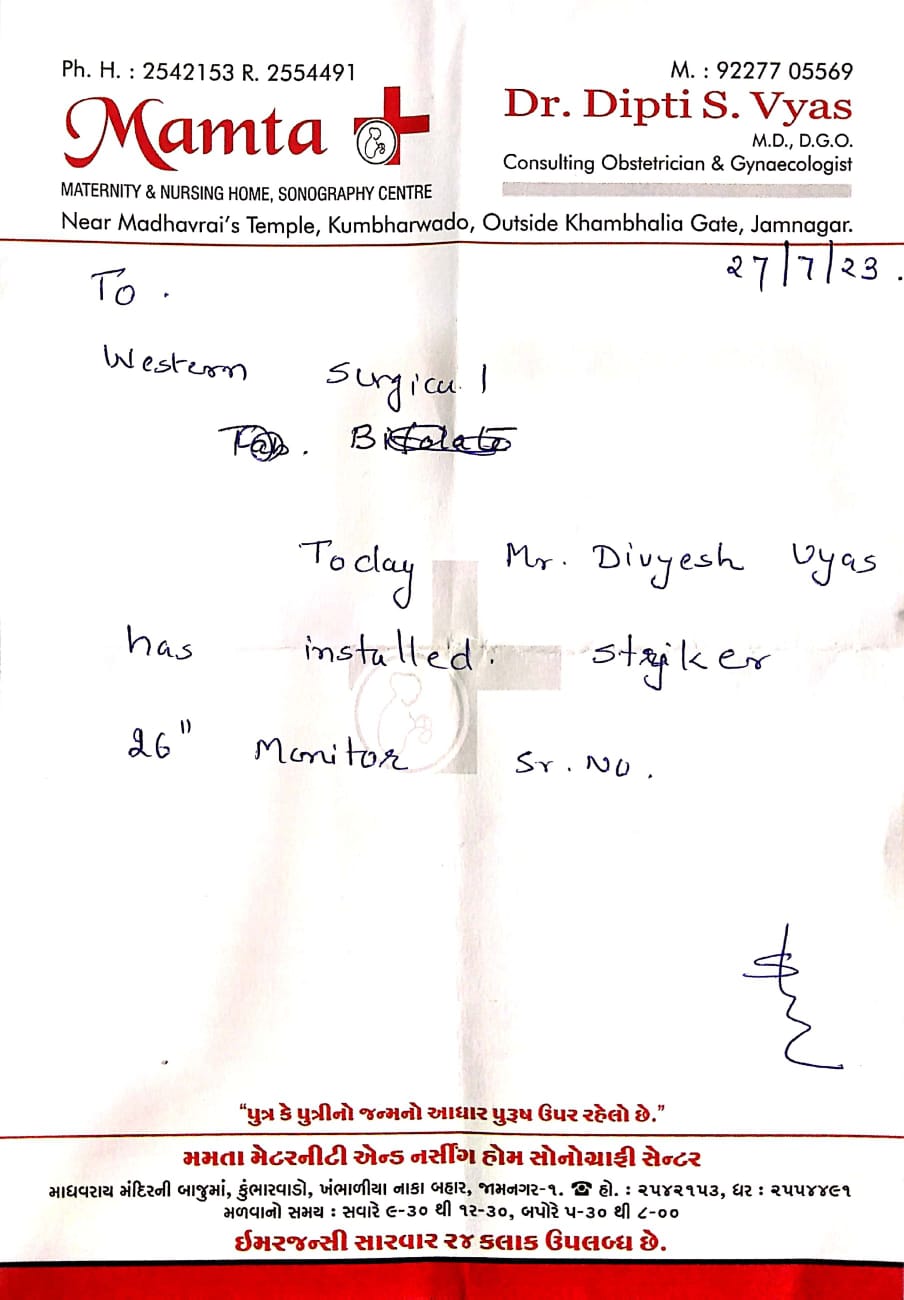 Ph. H. : 2542153 R. 2554491
M. : 92277 05569
Mamta
Dr. Dipti S. Vyas
M.D., D.G.O.
Consulting Obstetrician & Gynaecologist
MATERNITY & NURSING HOME, SONOGRAPHY CENTRE
Near Madhavrai's Temple, Kumbharwado, Outside Khambhalia Gate, Jamnagar.
27/7/23.
To.
Western Surgical
Today Mr. Divyesh Vyas
has installed. Stryker
26" Monitor Sr. No.
“પુત્ર કે પુત્રીનો જન્મનો આધાર પુરૂષ ઉપર રહેલો છે.”
મમતા મેટરનીટી એન્ડ નર્સીંગ હોમ સોનોગ્રાફી સેન્ટર
માધવરાય મંદિરની બાજુમાં, કુંભારવાડો, ખંભાળીયા નાકા બહાર, જામનગર-૧. ☎ હો. : ૨૫૪૨૧૫૩, ઘર : ૨૫૫૪૪૯૧
મળવાનો સમય : સવારે ૯-૩૦ થી ૧૨-૩૦, બપોરે ૫-૩૦ થી ૮-૦૦
ઈમરજન્સી સારવાર ૨૪ કલાક ઉપલબ્ધ છે.